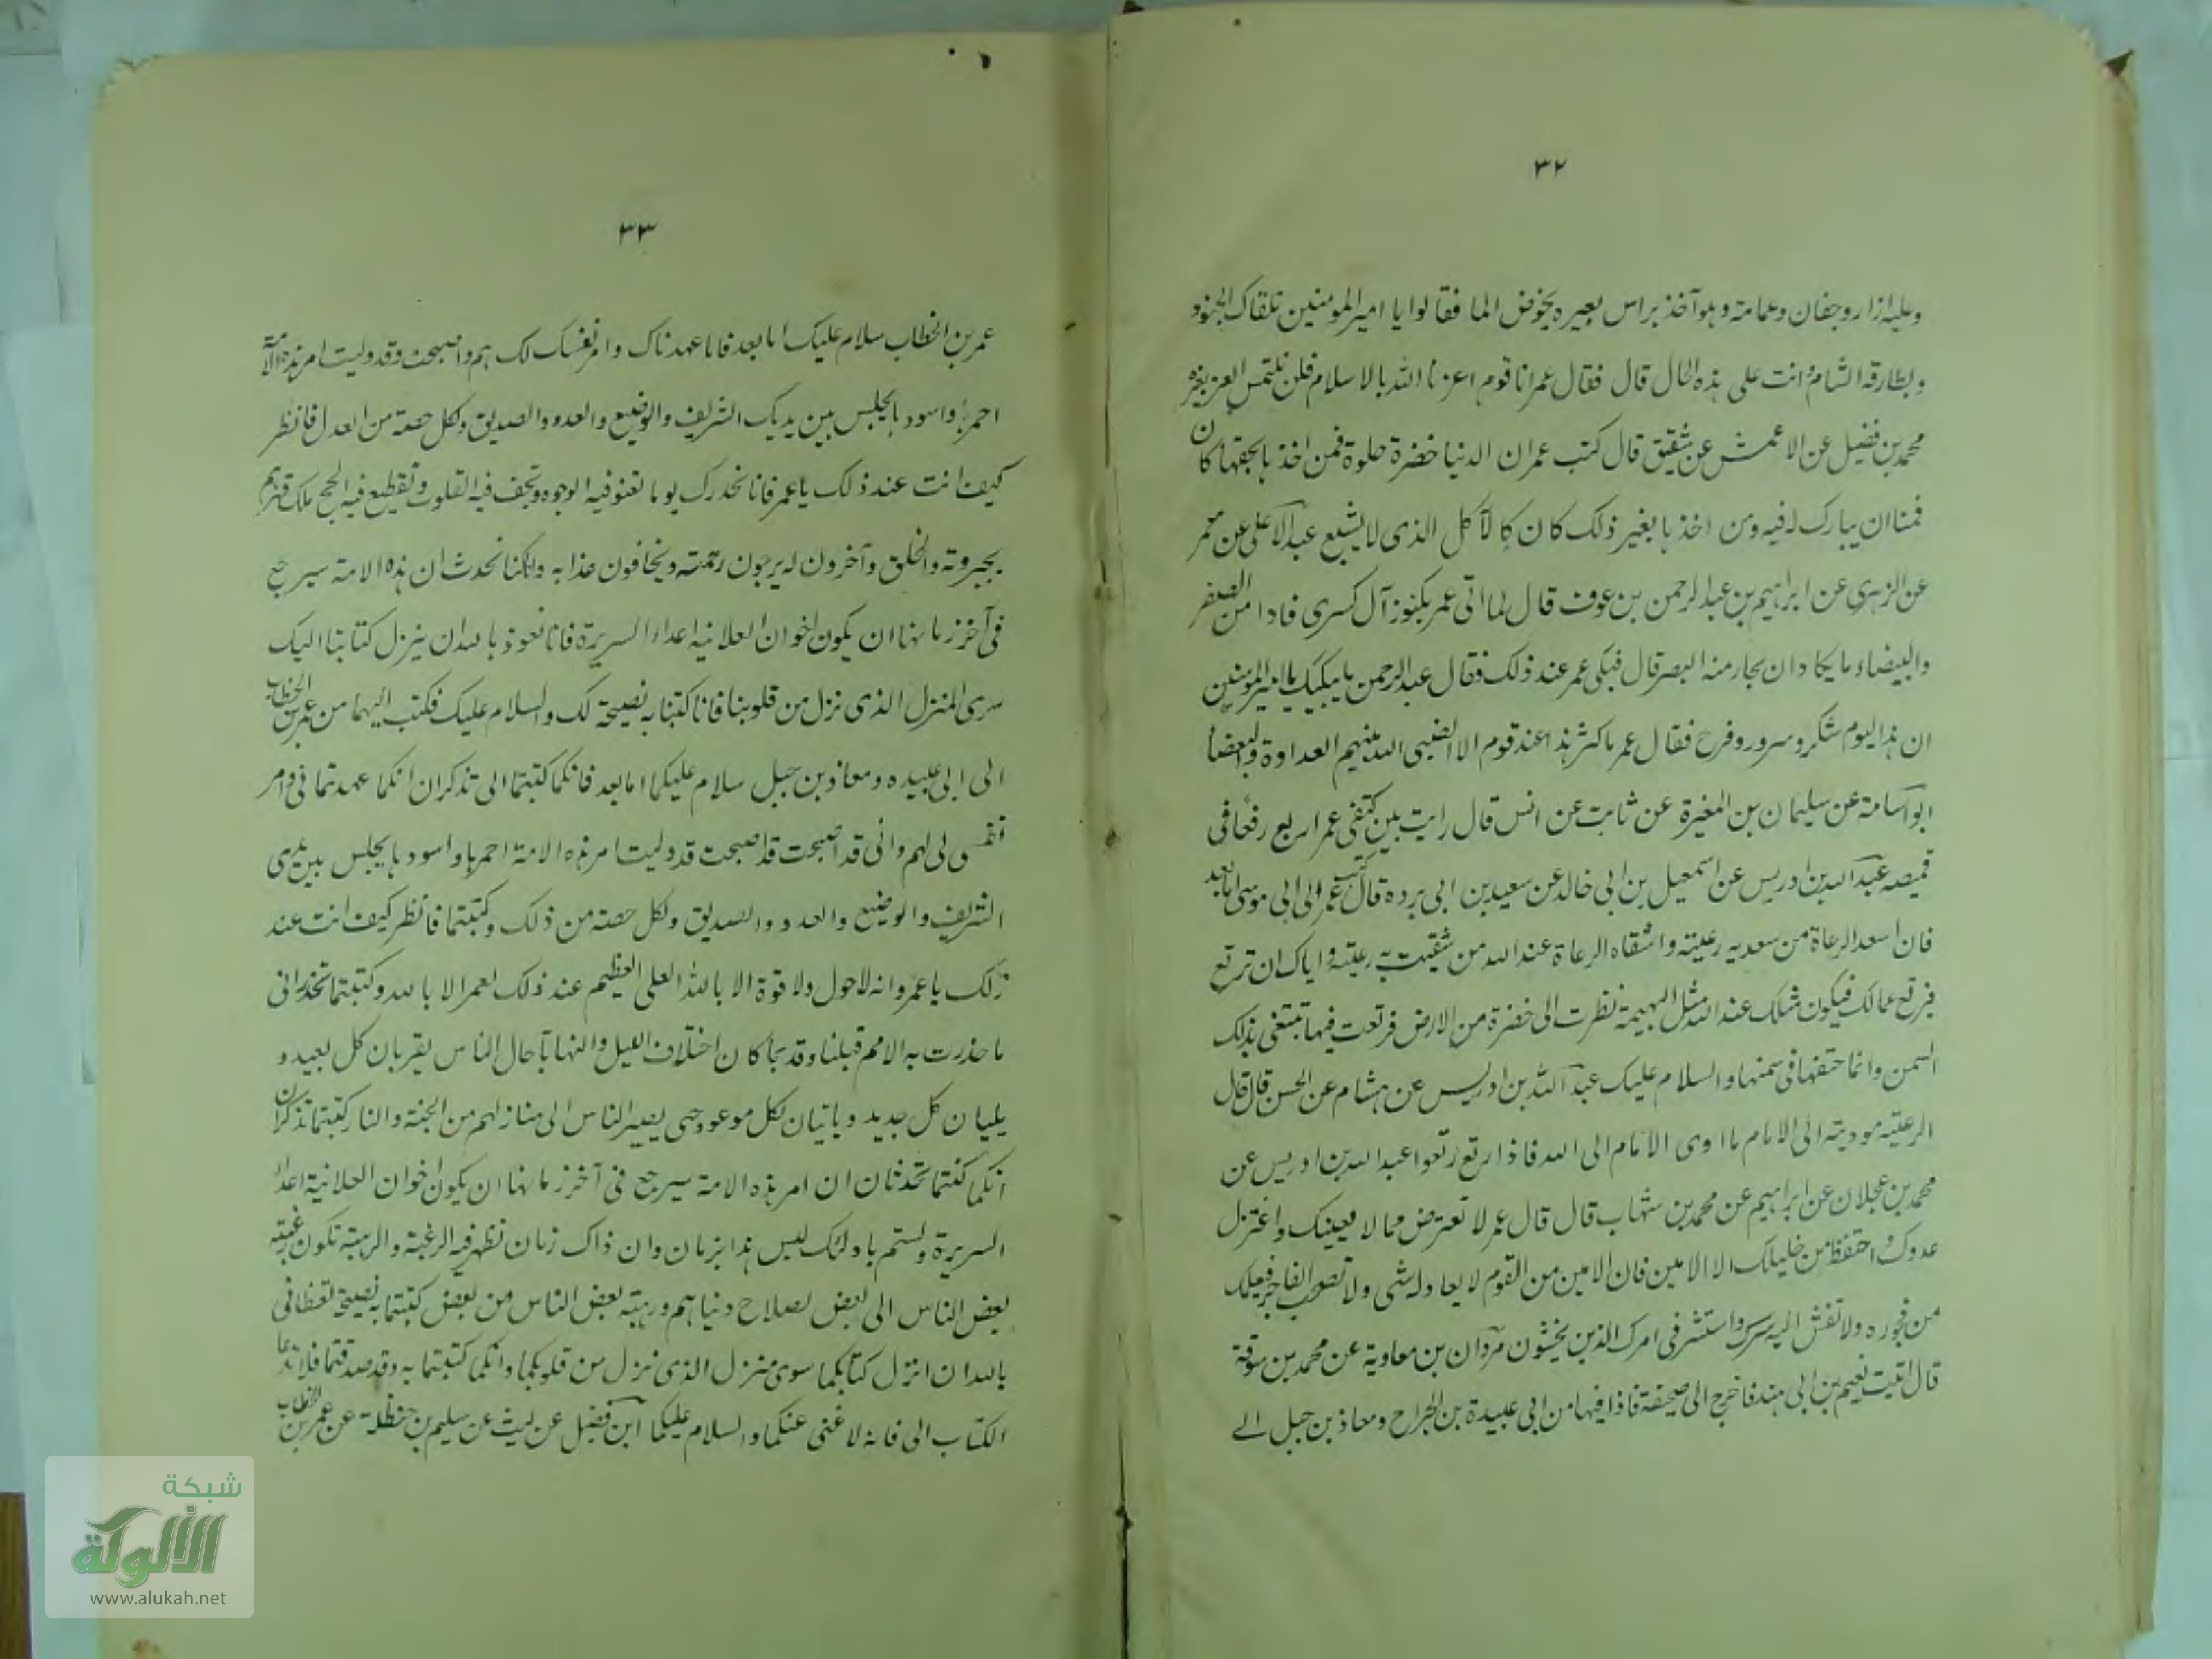 ٣٢
وعليه ازار وخفان وعمامة وهو آخذ براس بعيره يخوض الما فقالوا يا امير المومنين تلقاك الجنود
وبطارقه الشام وانت على هذه الحال قال فقال عمر انا قوم اعزنا الله بالاسلام فلن نلتمس العز بغيره
محمد بن فضيل عن الاعمش عن شقيق قال كتب عمر ان الدنيا خضرة حلوة فمن اخذها بحقها كان
قمنا ان يبارك له فيه ومن اخذها بغير ذلك كان كالآكل الذى لا يشبع عبد الاعلى عن معمر
عن الزهري عن ابراهيم بن عبد الرحمن بن عوف قال لما اتى عمر بكنوز آل كسرى فاذا من الصفر
والبيضاء ما يكاد ان يحار منه البصر قال فبكى عمر عند ذلك فقال عبد الرحمن ما يبكيك يا امير المومنين
ان هذا اليوم شكر وسرور وفرح فقال عمر ما كثر هذا عند قوم الا القى الله بينهم العداوة والبغضا
ابو اسامة عن سليمان بن المغيرة عن ثابت عن انس قال رايت بين كتفى عمر اربع رقعا في
قميصه عبد الله بن ادريس عن اسمعيل بن ابي خالد عن سعيد بن ابى برده قال كتب عمر الى ابى موسى اما بعد
فان اسعد الرعاة من سعد به رعيته واشقاه الرعاة عند الله من شقيت به رعيته واياك ان ترتع
فيرتع عمالك فيكون مثلك عند الله مثل البهيمة نظرت الى خضرة من الارض فرتعت فيها تبتغى بذلك
السمن وانما حتفها في سمنها والسلام عليك عبد الله بن ادريس عن هشام عن الحسن قال قال
الرعيته موديته الى الامام ما اوى الامام الى الله فاذا رتع رتعوا عبد الله بن ادريس عن
محمد بن عجلان عن ابراهيم عن محمد بن شهاب قال قال عمر لا تعترض فيما لا يعينك واعتزل
عدوك واحتفظ من خليلك الا الامين فان الامين من القوم لا يعادله شى ولا تصحب الفاجر فيعلمك
من فجوره ولا تفش اليه سرك واستشر فى امرك الذين يخشون مروان بن معاوية عن محمد بن سوقة
قال اتيت نعيم بن ابى هند فاخرج الى صحيفة فاذا فيها من ابى عبيدة بن الجراح ومعاذ بن جبل الے
٣٣
عمر بن الخطاب سلام عليك اما بعد فانا عهدناك وامر نفسك لك هم واصبحت وقد وليت امر هذه الامة
احمرها واسودها يجلس بين يديك الشريف والوضيع والعدو والصديق ولكل حصة من العدل فانظر
كيف انت عند ذلك يا عمر فانا نحذرك يوما تعنو فيه الوجوه وتجف فيه القلوب وتقطع فيه الحجج ملك قهرهم
بجبروته والخلق وآخرون له يرجون رحمته ويخافون عذابه وانا كنا نحدث ان هذه الامة سيرجع
فى آخر زمانها ان يكون اخوان العلانية اعداء السريرة فانا نعوذ بالله ان ينزل كتابنا اليك
سرى المنزل الذى نزل من قلوبنا فانا كتبنا به نصيحة لك والسلام عليك فكتب اليهما من عمر بن الخطاب
الى ابى عبيده ومعاذ بن جبل سلام عليكما اما بعد فانكما كتبتما الى تذكران انكما عهدتمانى وامر
نفسى لى لهم وانى قد اصبحت قد اصبحت قد وليت امر هذه الامة احمرها واسودها يجلس بين يدى
الشريف والوضيع والعدو والصديق ولكل حصة من ذلك وكتبتما فانظر كيف انت عند
ذلك يا عمر وانه لا حول ولا قوة الا بالله العلى العظيم عند ذلك لعمر الا بالله وكتبتما تحذرانى
ما حذرت به الامم قبلنا وقديما كان اختلاف الليل والنهار بآجال الناس يقربان كل بعيد و
يبليان كل جديد وياتيان بكل موعود حتى يصير الناس الى منازلهم من الجنة والنار كتبتما تذكران
انكما كنتما تحدثان ان امر هذه الامة سيرجع فى آخر زمانها ان يكون اخوان العلانية اعداء
السريرة ولستم باولئك ليس هذا بزمان وان ذاك زمان تظهر فيه الرغبة والرهبة تكون رغبة
بعض الناس الى بعض لصلاح دنياهم ورهبة بعض الناس من بعض كتبتما به نصيحة تعظانى
بالله ان انزل كتابكما سوى منزل الذى نزل من قلوبكما وانكما كتبتما به وقد صدقتما فلا تدعا
الكتاب الى فانه لا غنى عنكما والسلام عليكما ابن فضيل عن ليث عن سليم بن حنظلة عن عمر بن الخطاب
شبكة
الألوكة
www.alukah.net